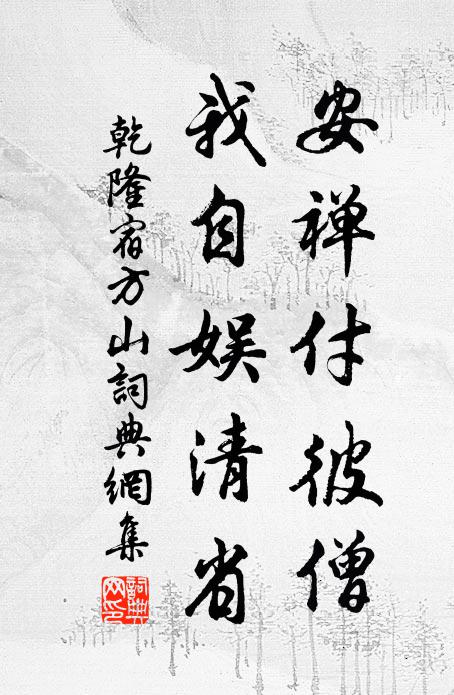 安禅付彼僧
我自娱清省
乾隆宿方山詞典網集
詞典網印